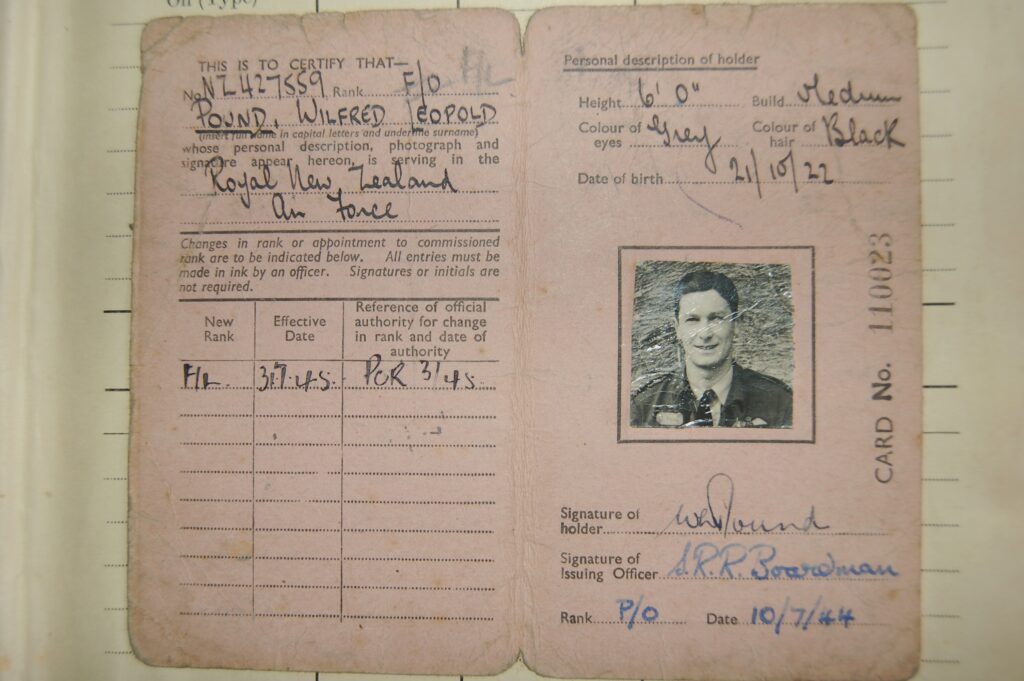 THIS IS TO CERTIFY THAT—
No. NZ427559 Rank F/O
POUND, WILFRED LEOPOLD
(insert full name in capital letters and underline surname)
whose personal description, photograph and
signature appear hereon, is serving in the
Royal New Zealand
Air Force
Changes in rank or appointment to commissioned
rank are to be indicated below. All entries must be
made in ink by an officer. Signatures or initials are
not required.
New Rank
Effective Date
Reference of official authority for change in rank and date of authority
F/L 3.1.7.45. POR 3/45.
Personal description of holder
Height 6' 0" Build Medium
Colour of eyes Grey Colour of hair Black
Date of birth 21/10/22
CARD No. 110023
Signature of holder W L Pound
Signature of Issuing Officer S.R.R. Boardman
Rank P/O Date 10/7/44